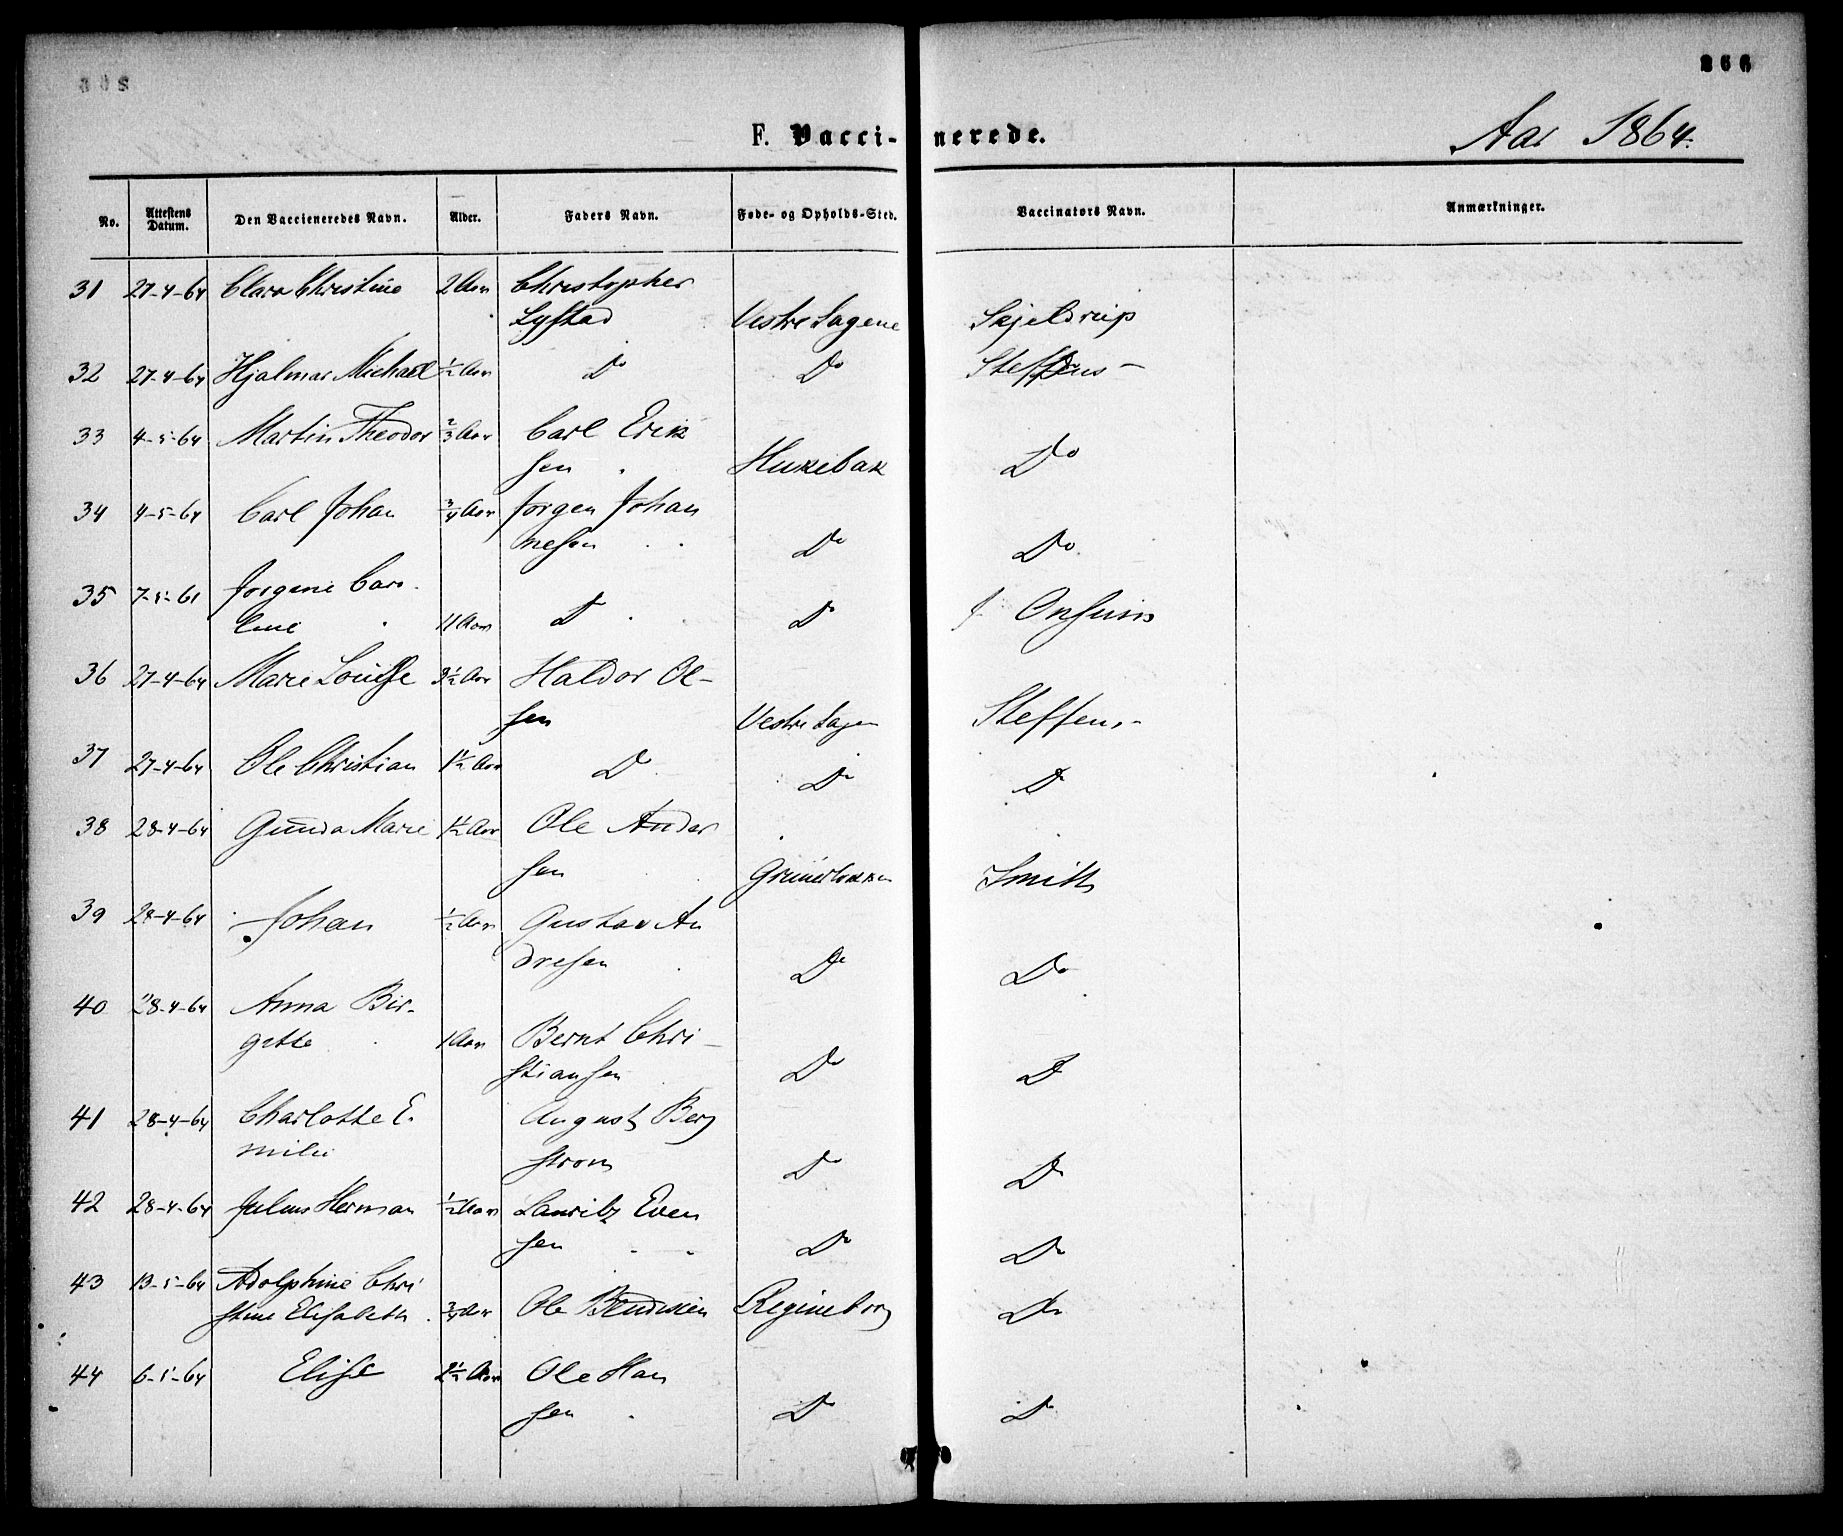 266
F. Vacci- nerede. Aar 1864.
No. Attestens Datum. Den Vaccieneredes Navn. Alder. Faders Navn. Føde- og Opholds-Sted. Vaccinators Navn. Anmærkninger.
31 27-4-64 Clara Christine 2 Aar Christopher
Lystad Vestre Sagene Skjeldrup
32 27-4-64 Hjalmar Michael ½ Aar Do Do Steffens
33 4-5-64 Martin Theodor ⅔ Aar Carl Erik
sen Hukebak Do
34 4-5-64 Carl Johan ¾ Aar Jørgen Johan
nesen Do Do
35 7-5-61 Jorgene Caro
line 11 Aar Do Do
36 27-4-64 Marie Louisse 3½ Aar Haldor Ol-
sen Vestre Sagen Steffens
37 27-4-64 Ole Christian 1½ Aar Do Do Do
38 28-4-64 Gunda Marie 1½ Aar Ole Ander
sen Grünerløkken Smith
39 28-4-64 Johan ½ Aar Gustav An
dresen Do Do
40 28-4-64 Anna Bir-
gitte 1 Aar Bernt Chri-
stiansen Do Do
41 28-4-64 Charlotte E.
milie August Berg
strom Do Do
42 28-4-64 Julius Herman ½ Aar Lauritz Even
sen Do Do
43 13-5-64 Adolphine Chri
stine Elisabeth ¾ Aar Ole Regineborg Do
44 6-5-64 Elise 2½ Aar Ole Han
sen Do Do